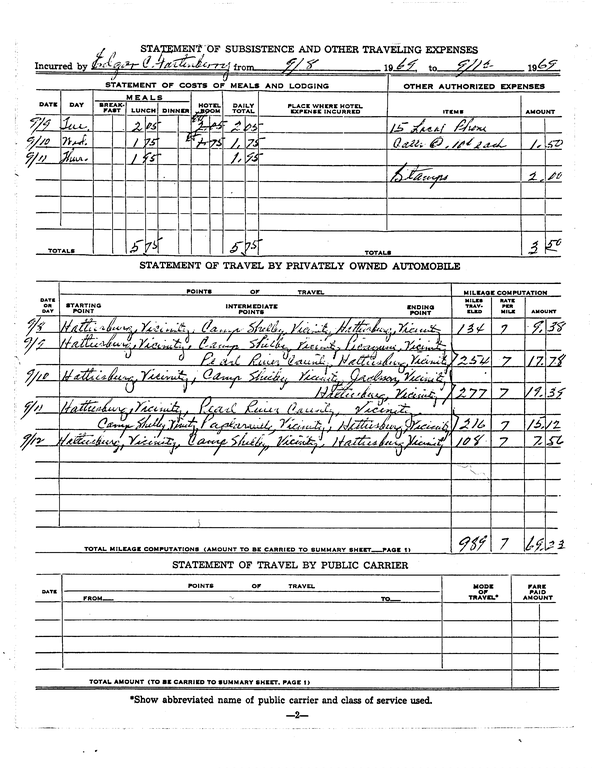 STATEMENT OF SUBSISTENCE AND OTHER TRAVELING EXPENSES
Incurred by Edgar C. Fortenberry from 9/8 1969 to 9/12 1969
STATEMENT OF COSTS OF MEALS AND LODGING OTHER AUTHORIZED EXPENSES
DATE DAY MEALS BREAK-FAST LUNCH DINNER HOTEL ROOM DAILY TOTAL PLACE WHERE HOTEL EXPENSE INCURRED ITEMS AMOUNT
9/9 Tue. 2 05 2 05 15 Local Phone
9/10 Wed. 1 75 1 75 Calls @ 10¢ each 1.50
9/11 Thur. 1 95 1.95
Stamps 2.00
TOTALS 5 75 5 75 TOTALS 3 50
STATEMENT OF TRAVEL BY PRIVATELY OWNED AUTOMOBILE
DATE OR DAY POINTS OF TRAVEL MILEAGE COMPUTATION
STARTING POINT INTERMEDIATE POINTS ENDING POINT MILES TRAV-ELED RATE PER MILE AMOUNT
9/8 Hattiesburg, Vicinity, Camp Shelby Vicinity, Hattiesburg, Vicinity 134 7 9.38
9/9 Hattiesburg, Vicinity, Camp Shelby Vicinity, Picayune, Vicinity
Pearl River County, Hattiesburg Vicinity 254 7 17.78
9/10 Hattiesburg Vicinity, Camp Shelby Vicinity Jackson, Vicinity
Hattiesburg, Vicinity 277 7 19.39
9/11 Hattiesburg, Vicinity, Pearl River County, Vicinity
Camp Shelby Vinity, Vicinity, Hattiesburg Vicinity 216 7 15.12
9/12 Hattiesburg, Vicinity, Camp Shelby, Vicinity, Hattiesburg Vicinity 108 7 7.56
TOTAL MILEAGE COMPUTATIONS (AMOUNT TO BE CARRIED TO SUMMARY SHEET—PAGE 1) 989 7 69.23
STATEMENT OF TRAVEL BY PUBLIC CARRIER
DATE POINTS OF TRAVEL MODE OF TRAVEL* FARE PAID AMOUNT
FROM— TO—
TOTAL AMOUNT (TO BE CARRIED TO SUMMARY SHEET, PAGE 1)
*Show abbreviated name of public carrier and class of service used.
—2—